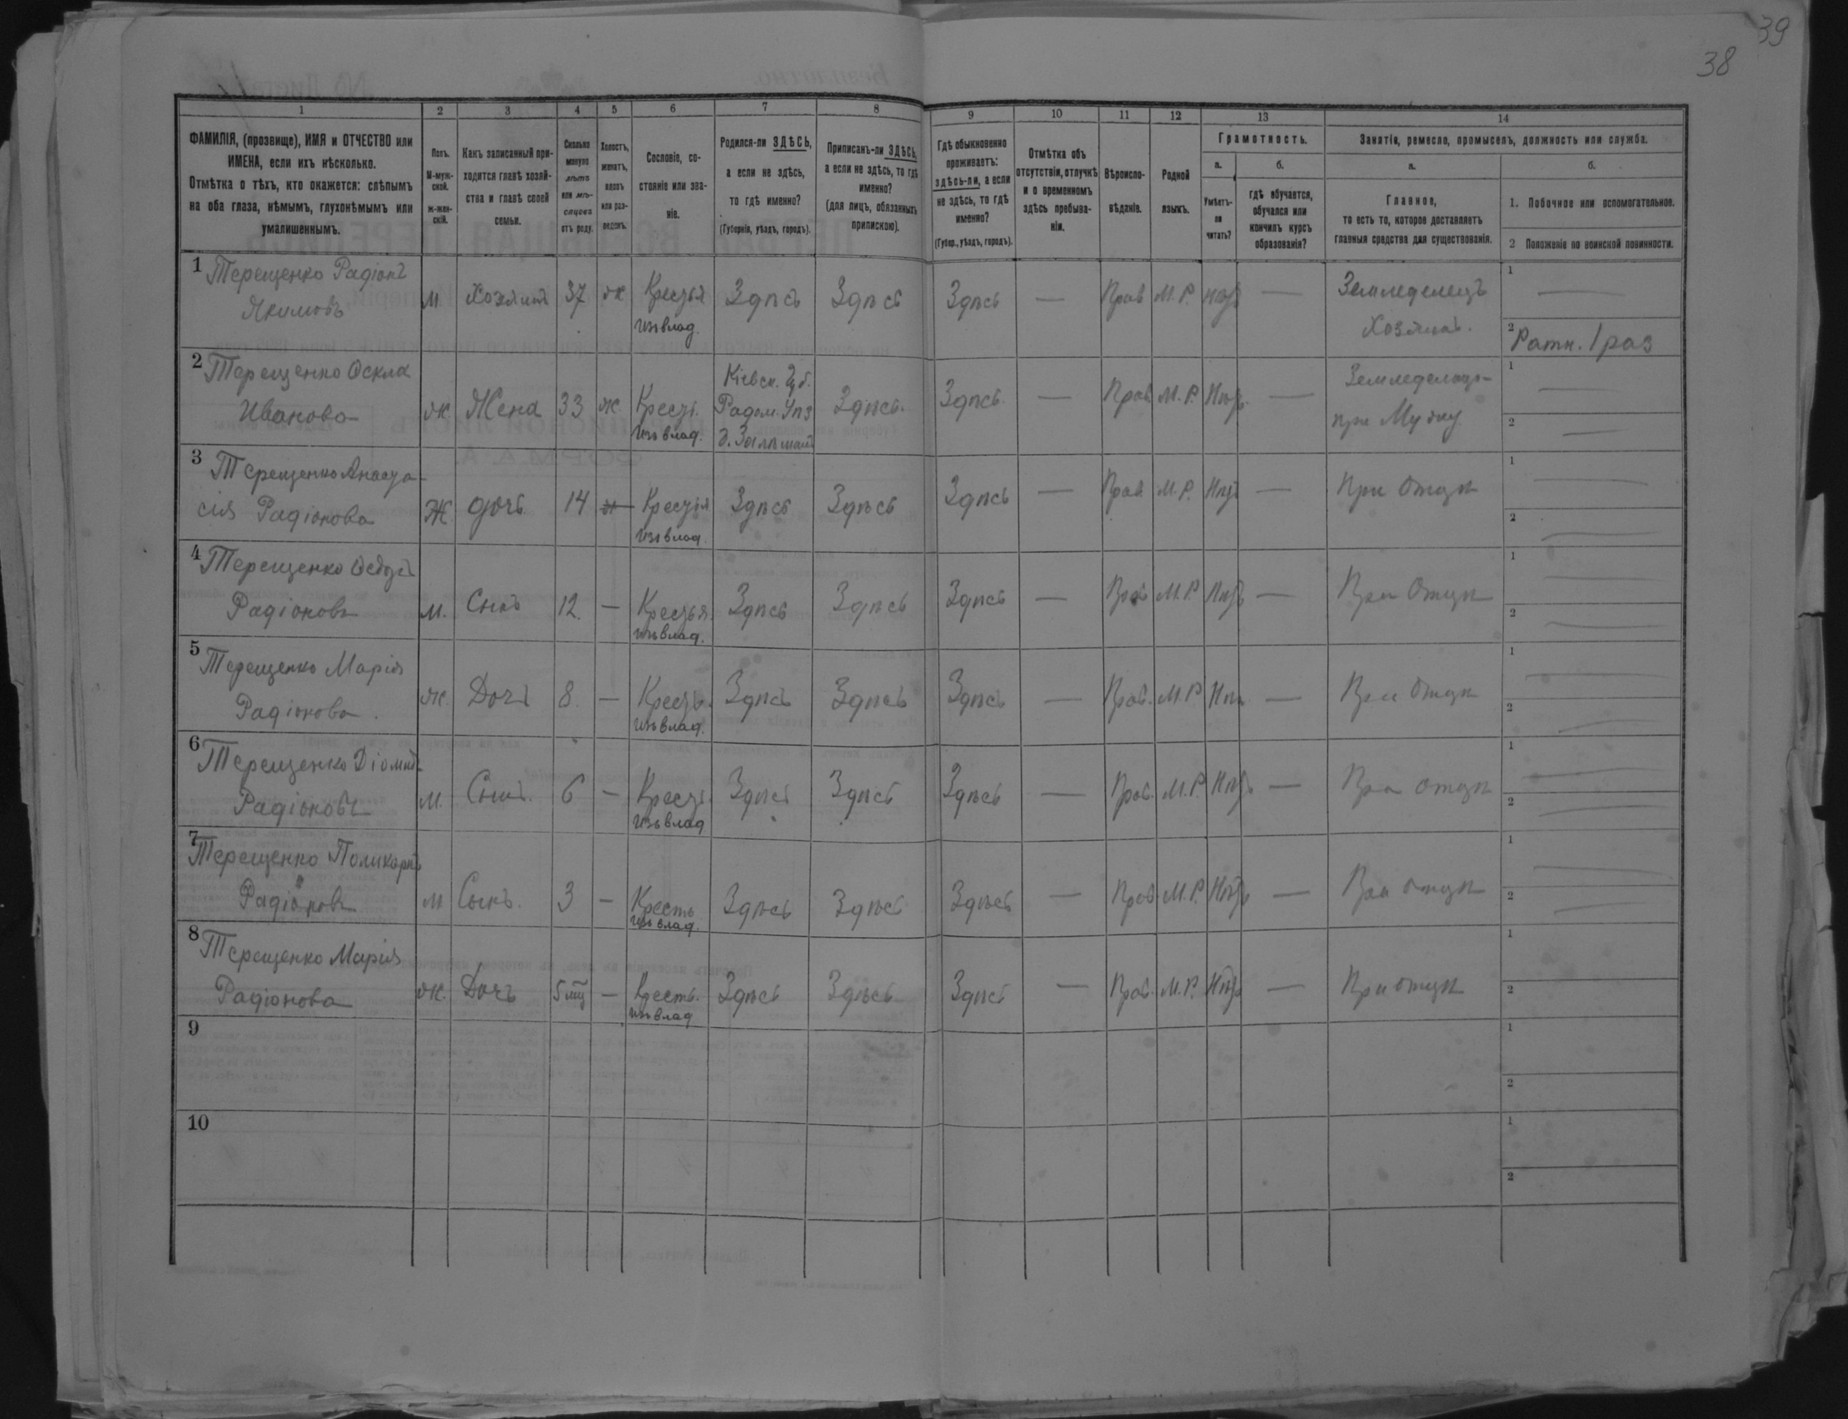 39
38
1 2 3 4 5 6 7 8 9 10 11 12 13 14
ФАМИЛІЯ, (прозвище), ИМЯ и ОТЧЕСТВО или
ИМЕНА, если ихъ нѣсколько.
Отмѣтка о тѣхъ, кто окажется: слѣпымъ
на оба глаза, нѣмымъ, глухонѣмымъ или
умалишеннымъ.
Полъ.
М-муж-
ской.
Ж-жен-
скій.
Какъ записанный при-
ходится главѣ хозяй-
ства и главѣ своей
семьи.
Сколько
минуло
лѣтъ
или мѣ-
сяцевъ
отъ роду.
Холостъ,
женатъ,
вдовъ
или раз-
веденъ.
Сословіе, со-
стояніе или зва-
ніе.
Родился-ли ЗДѢСЬ,
а если не здѣсь,
то гдѣ именно?
(Губернія, уѣздъ, городъ).
Приписанъ-ли ЗДѢСЬ,
а если не здѣсь, то гдѣ
именно?
(для лицъ, обязанныхъ
припискою).
Гдѣ обыкновенно
проживаетъ:
здѣсь-ли, а если
не здѣсь, то гдѣ
именно?
(Губер., уѣздъ, городъ).
Отмѣтка объ
отсутствіи, отлучкѣ
и о временномъ
здѣсь пребыва-
ніи.
Вѣроиспо-
вѣданіе.
Родной
языкъ.
Грамотность.
а.
Умѣетъ-
ли
читать?
б.
гдѣ обучается,
обучался или
кончилъ курсъ
образованія?
Занятія, ремесло, промыселъ, должность или служба.
а.
Главное,
то есть то, которое доставляетъ
главныя средства для существованія.
б.
1. Побочное или вспомогательное.
2 Положеніе по воинской повинности.
1 Терещенко Радіонъ
Якимовъ
м. Хозяинъ 37 ж Крестья
изъ влад.
Здпсь Здпсь Здпсь — Прав М.Р. —
Земледелецъ
Хозяинъ.
1 —
2 Ратн. 1 раз
2 Терещенко
Иванова
ж. Жена 33 ж Крест
изъ влад.
Кіевск. Губ.
Радом. Упз
Здпсь. Здпсь — Прав М.Р.
при Мужу
1 —
2 —
3 Терещенко Анаста-
сія Радіонова
Ж дочь 14 Крестья
изъ влад.
Здпсь Здпсь Здпсь — Прав М.Р. —
При Отцп
1 —
2 —
4 Терещенко
Радіоновъ
м. Сынъ 12. — Крестья
изъ влад.
Здпсь Здпсь Здпсь — Прав М.Р —
При Отцп
1 —
2 —
5 Терещенко Марія
Радіонова.
ж. Дочь 8. — Кресть.
изъ влад.
Здпсь Здпсь Здпсь — Прав. М.Р —
При Отцп
1 —
2 —
6 Терещенко
Радіоновъ
м. Сынъ. 6 — Крест
изъ влад
Здпсь Здпсь Здпсь — Прав. М.Р. —
При отцп
1 —
2 —
7 Терещенко Поликарпъ
Радіоновъ
м Сынъ. 3 — Кресть
изъ влад.
Здпсь Здпсь Здпсь — Прав М.Р. —
При отцп
1 —
2 —
8 Терещенко Марія
Радіонова
ж. Дочь 5 мц — Кресть.
изъ влад
Здпсь Здпсь Здпсь — Прав. М.Р. —
При отцп
1
2
9
1
2
10
1
2